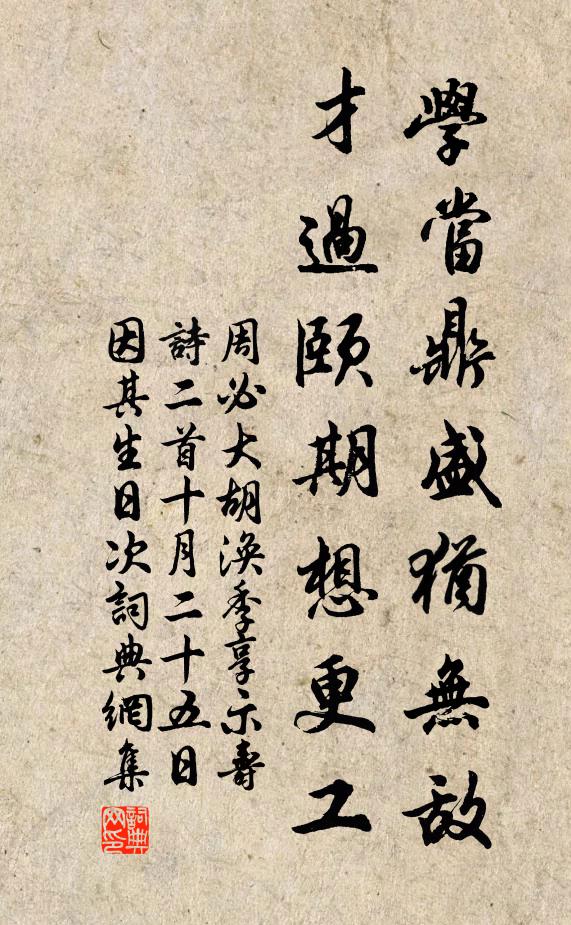 學當鼎盛猶無敵
才過頤期想更工
周必大胡渙季享示壽
詩二首十月二十五日
因其生日次詞典網集
詞典网印